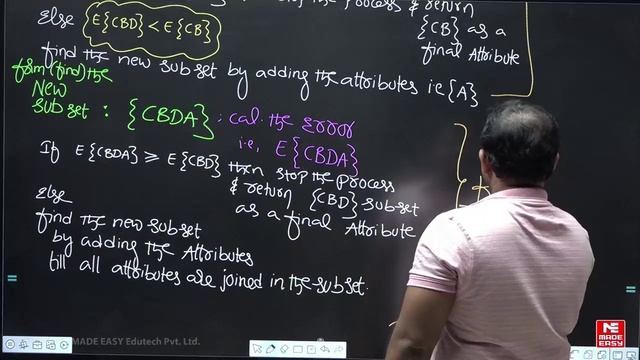 the process & return
Else {E{CBD} < E{CB}}
{CB} as a
final Attribute
find the new subset by adding the attributes i.e {A}
form (find) the
New
subset : {CBDA} : cal. the Error
i.e., E{CBDA}
If E{CBDA} ⩾ E{CBD} then stop the process
& return {CBD} subset
as a final Attribute
Else
find the new subset
by adding the Attributes
till all attributes are joined in the subset.
MADE EASY Edutech Pvt. Ltd.
MADE
EASY